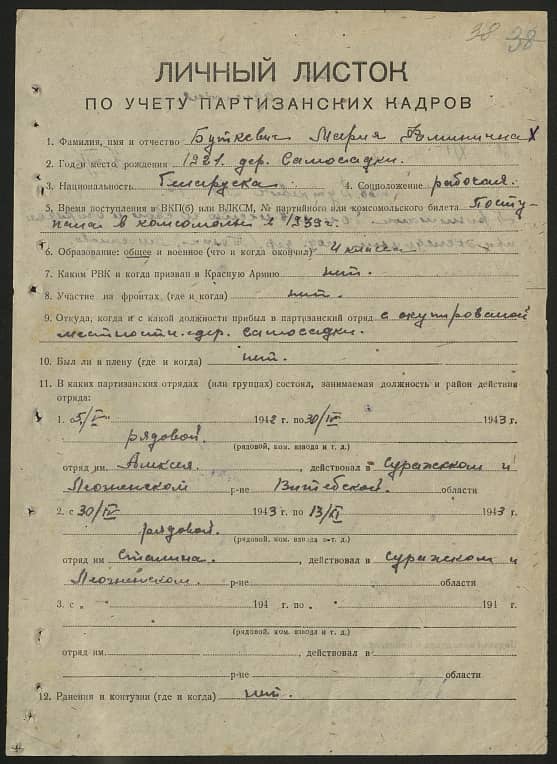 38 38
ЛИЧНЫЙ ЛИСТОК
ПО УЧЕТУ ПАРТИЗАНСКИХ КАДРОВ
1. Фамилия, имя и отчество Буткевич Мария
2. Год и место рождения 1921. дер. Самосадки.
3. Национальность 4. Соцположение рабочая.
5. Время поступления в ВКП(б) или ВЛКСМ, № партийного или комсомольского билета Посту-
пила в комсомол в 1939 г.
6. Образование: общее и военное (что и когда окончил) 4 класса
7. Каким РВК и когда призван в Красную Армию нит.
8. Участие на фронтах (где и когда) нит.
9. Откуда, когда и с какой должности прибыл в партизанский отряд с окупированой
местности. дер. Самосадки.
10. Был ли в плену (где и когда) нит.
11. В каких партизанских отрядах (или группах) состоял, занимаемая должность и район действия
отряда:
1. с 5/V 1942 г. по 30/IV 1943 г.
рядовой.
(рядовой, ком. взвода и т. д.)
отряд им. Алексея. , действовал в Суражском и
Лиозненском р-не Витебской. области
2. с 30/IV 1943 г. по 13/XI 1943 г.
рядовой.
(рядовой, ком. взвода и т. д.)
отряд им Сталина. , действовал в Суражском и
Лиозненском. р-не области
3. с „ 194 г. по „ 194 г.
(рядовой, ком. взвода и т. д.)
отряд им. , действовал в
р-не области
12. Ранения и контузии (где и когда) нит.